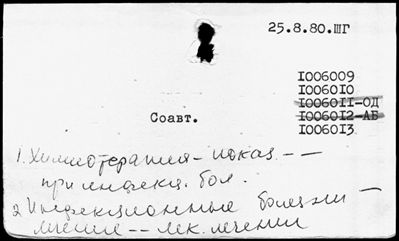 25.8.80.ШГ
1006009
1006010
1006011-ОД
1006012-АБ
1006013
Соавт.
1. Химиотерапия - показ. - -
при инфекц. бол.
2 Инфекционные болезни -
лечение -- лек. лечении